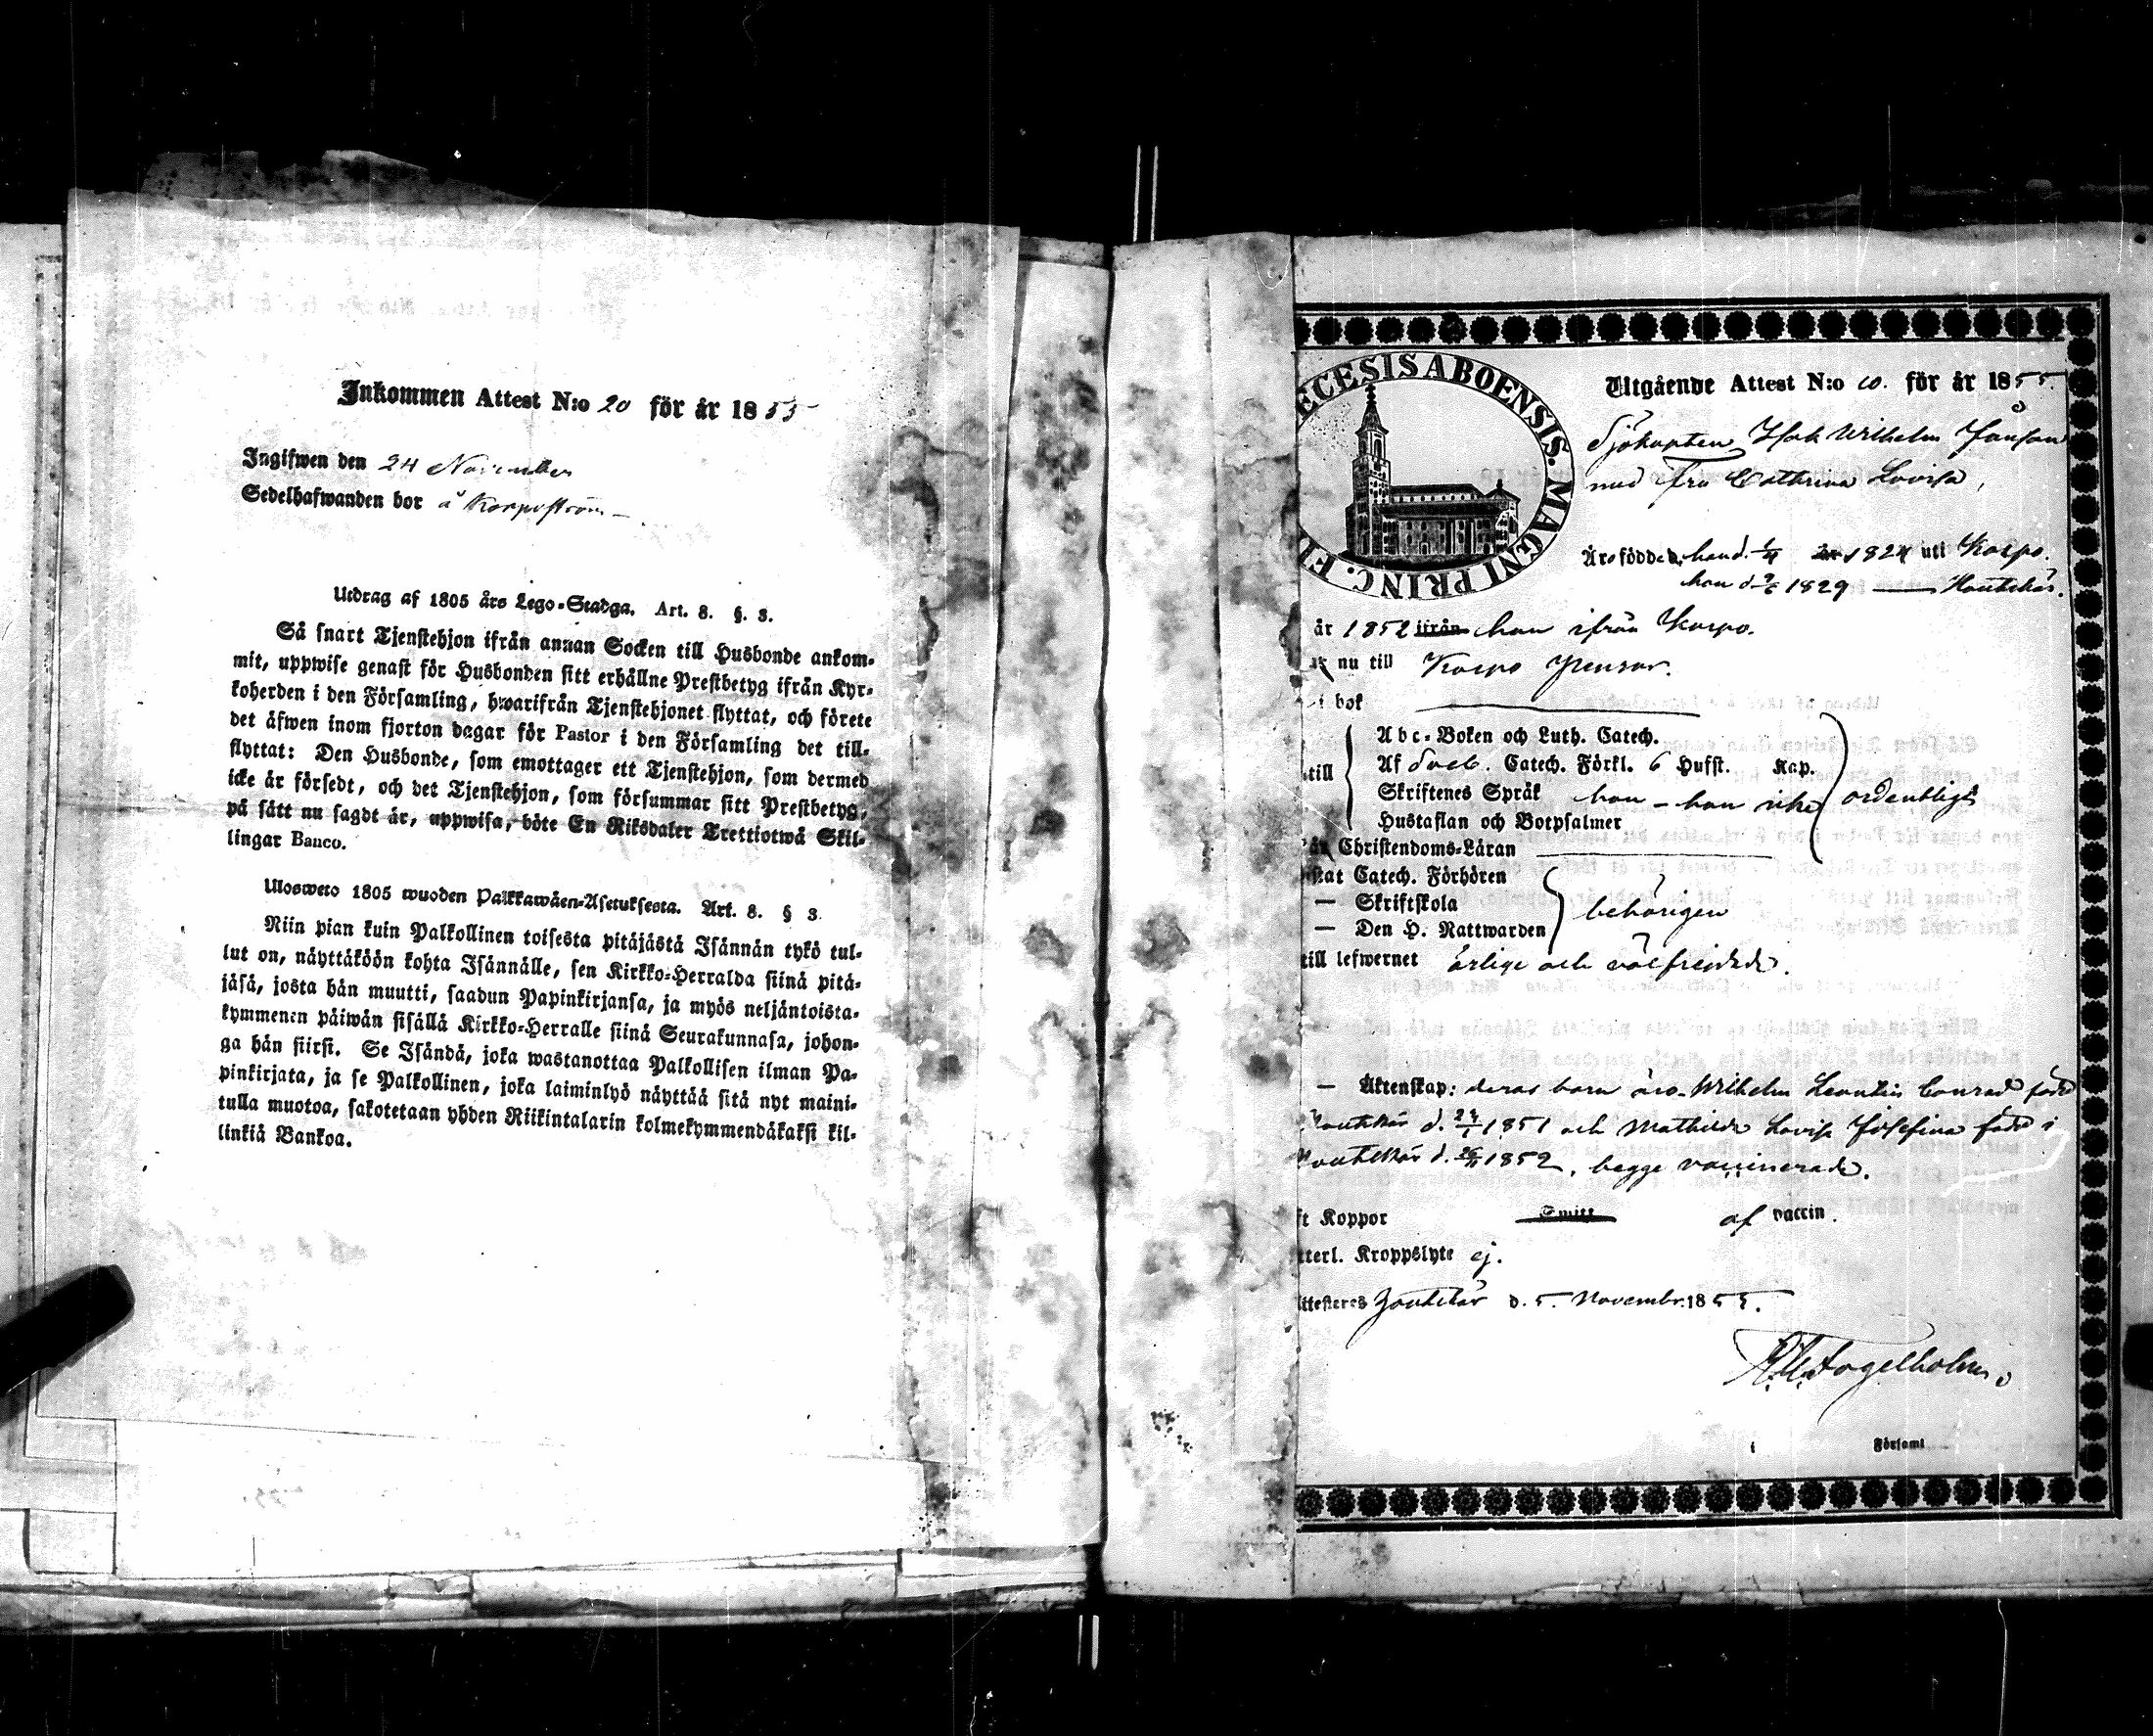 Inkommen Attest N:o 20 för år 1855
Ingifwen den 24 November
Sedelhafwanden bor å Korpoström
Utdrag af 1805 års Lego-Stadga. Art. 8. §. 3.
Så snart Tjenstehjon ifrån annan Socken till Husbonde ankom-
mit, uppwise genast för Husbonden sitt erhållne Prestbetyg ifrån Kyr-
koherden i den Församling, hwarifrån Tjenstehjonet flyttat, och förete
det äfwen inom fjorton dagar för Pastor i den Församling det till-
flyttat: Den Husbonde, som emottager ett Tjenstehjon, som dermed
icke är försedt, och det Tjenstehjon, som försummar sitt Prestbetyg,
på sätt nu sagdt är, uppwisa, böte En Riksdaler Trettiotwå Skil-
lingar Banco.
Ulosweto 1805 wuoden Palkkawäen-Asetuksesta. Art. 8. § 3.
Niin pian kuin Palkollinen toisesta pitäjästä Isännän tykö tul-
lut on, näyttäköön kohta Isännälle, sen Kirkko-Herralda siinä pitä-
jäsä, josta hän muutti, saadun Papinkirjansa, ja myös neljäntoista-
kymmenen päiwän sisällä Kirkko-Herralle siinä Seurakunnasa, johon-
ga hän siirsi. Se Isändä, joka wastanottaa Palkollisen ilman Pa-
pinkirjata, ja se Palkollinen, joka laiminlyö näyttää sitä nyt maini-
tulla muotoa, sakotetaan yhden Riikintalarin kolmekymmendäkaksi kil-
linkiä Bankoa.
ECESIS ABOENSIS. MAGNI PRINC. FI
Utgående Attest N:o 10. för år 1855.
Sjökapten Isak Wilhelm Janson
med Fru Cathrina Lovisa,
Äro födde, han d. 1824 uti Korpo.
hon d. 1829 — Houtskär.
år 1852 ifrån han ifrån Korpo.
nu till Korpo
i bok
Abc-Boken och Luth. Catech.
till Af Sveb. Catech. Förkl. 6 Hufst. Kap.
Skriftenes Språk han – hon icke ordentligt
Hustaflan och Botpsalmer
Christendoms-Läran
stat Catech. Förhören
— Skriftskola behörigen
— Den H. Nattwarden
till lefwernet ärlige och välfrejdade.
— Äktenskap: deras barn äro Wilhelm Leontin Conrad född
Houtskär d. 1851 och Mathilda Lovisa Josefina född i
Houtskär d. 1852, begge vaccinerade.
ft Koppor Smitt af vaccin.
tterl. Kroppslyte ej.
ttesteras Houtskär d. 5. Novembr. 1855.
Fogelholm
i Församl